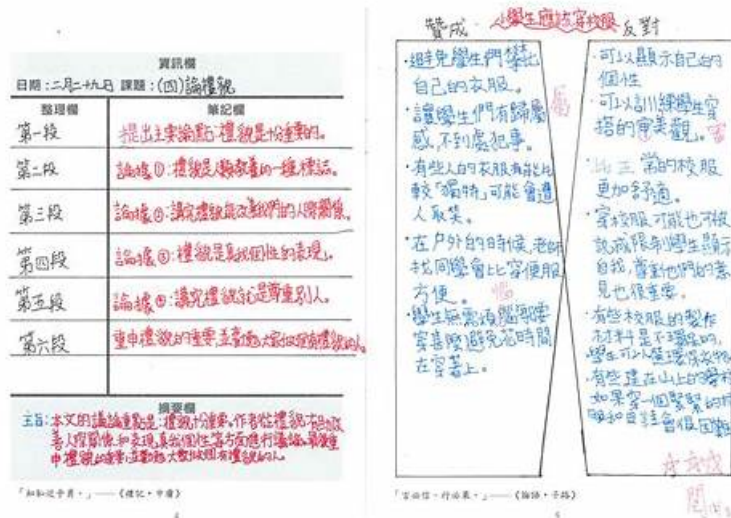 資訊欄
日期:二月二十九日 課題:(四)論禮貌
整理欄 筆記欄
第一段 提出主要論點:禮貌是十分重要的。
第二段 論據①:禮貌是人類教養的一種標誌。
第三段 論據②:講究禮貌能改善我們的人際關係。
第四段 論據③:禮貌是真我個性的表現。
第五段 論據④:講究禮貌就是尊重別人。
第六段 重申禮貌的重要,並勸勉大家做個有禮貌的人。
摘要欄
主旨:本文的議論重點是:禮貌十分重要。作者從禮貌
善人際關係和表現真我個性等方面進行議論。最後重
申禮貌的重要,並勸勉大家做個有禮貌的人。
「知恥近乎勇。」——《禮記·中庸》
小學生應該穿校服
贊成 反對
·避免學生們攀比
自己的衣服。
·讓學生們有歸屬
感,不到處犯事。
屬
·有些人的衣服有能比
較「獨特」可能會遭
人取笑。
·在户外的時候,老師
找同學會比穿便服
方便。
·學生無需煩惱
惱
穿甚麼,避免花時間
在穿著上。
·可以顯示自己的
個性
·可以訓練學生穿
搭的審美觀。
常的校服
更加舒適。
·穿校服可能也不被
說成限制學生顯示
自我,尊重他們的意
見也很重要。
·有些校服的製作
材料是不環保的,
學生可以
·有些建在山上的學校
如果穿一個緊緊的校
服和 會很困難
「言必信,行必果。」——《論語·子路》
閱